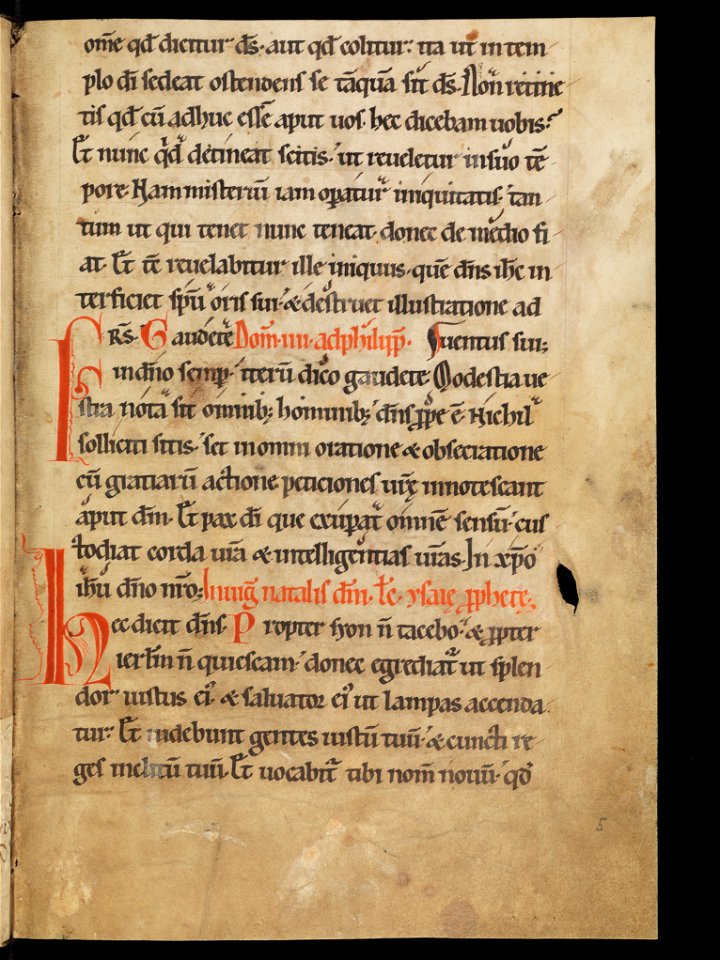 om̄e qđ dicitur d̄s. aut qđ colitur. ita ut in tem
plo d̄i sedeat ostendens se tāquā sit d̄s. Non retine
tis qđ cū adhuc essē aput uos. hec dicebam uobis?
Et nunc qͥd detineat scitis. ut reueletur in suo tē
pore. Nam misteriū iam operat᷑ iniquitatis. tan
tum ut qui tenet nunc teneat. donec de medio fi
at. Et tc̄ reuelabitur ille iniquus. quē dn̄s ihc̄ in
terficiet spū oris sui. & destruet illustratione ad
F̄RS. Gaudete Dom̄. iiii. ad philipp̄. uentus sui;
in dn̄o semp̄. iterū dico gaudete. Modestia ue
stra nota sit omnibꝫ hominibꝫ. dn̄s ꝓpe ē. Nichil
solliciti sitis. set in omni oratione & obsecratione
cū gratiarū actione peticiones ur̄ę innotescant
aput dm̄. Et pax d̄i que exuperat omnē sensū. cus
todiat corda ur̄a & intelligentias ur̄as. In xp̄o
ihū dn̄o nr̄o; In uiḡ natalis dn̄i. łc̄. ysaię ꝓphetę.
Hec dicit dn̄s. Propter syon n̄ tacebo. & ꝓpter
ierłm n̄ quiescam. donec egrediat᷑ ut splen
dor iustus eiꝰ. & saluator eiꝰ ut lampas accenda
tur. Et uidebunt gentes iustū tuū. & cuncti re
ges inclitū tuū. Et uocabit᷑ tibi nom̄ nouū. qđ
5